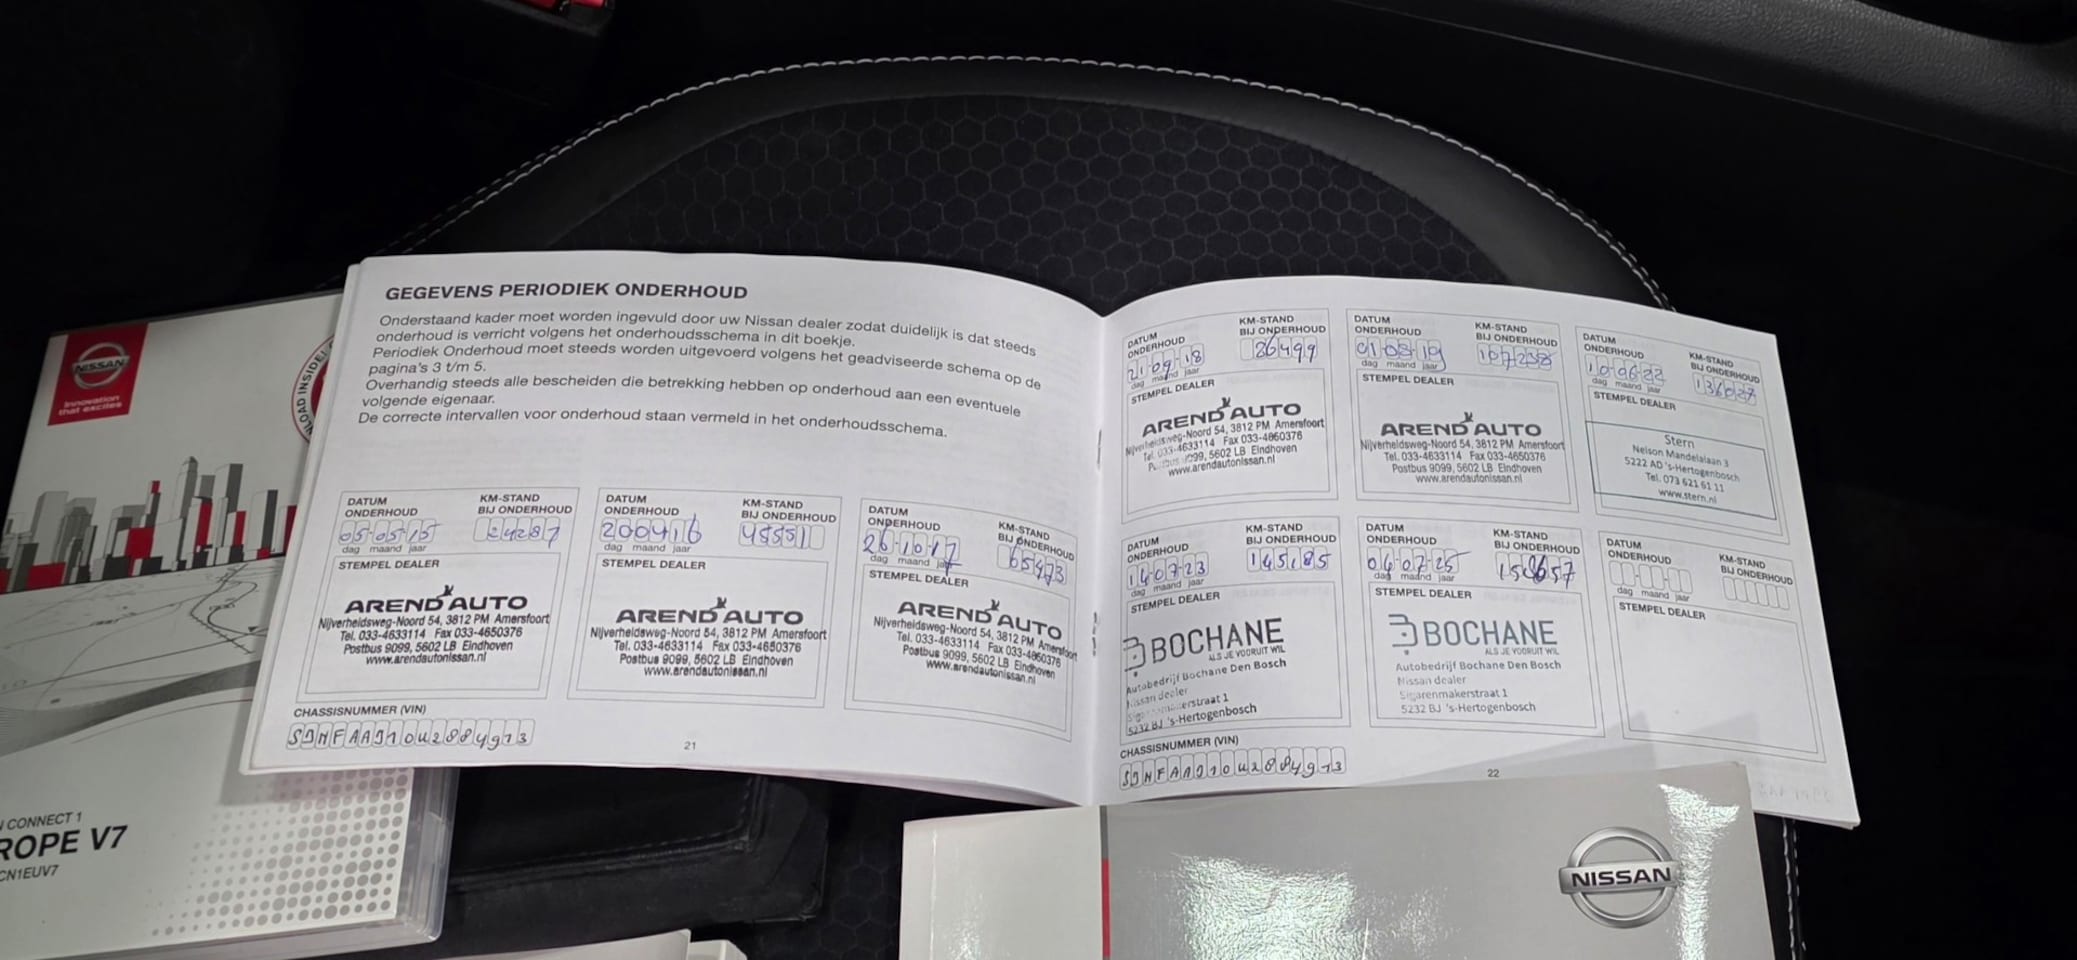 NISSAN
Innovation
that excites
N CONNECT 1
ROPE V7
CN1EUV7
GEGEVENS PERIODIEK ONDERHOUD
Onderstaand kader moet worden ingevuld door uw Nissan dealer zodat duidelijk is dat steeds
onderhoud is verricht volgens het onderhoudsschema in dit boekje.
Periodiek Onderhoud moet steeds worden uitgevoerd volgens het geadviseerde schema op de
pagina's 3 t/m 5.
Overhandig steeds alle bescheiden die betrekking hebben op onderhoud aan een eventuele
volgende eigenaar.
De correcte intervallen voor onderhoud staan vermeld in het onderhoudsschema.
DATUM
ONDERHOUD
05-05-15
dag maand jaar
KM-STAND
BIJ ONDERHOUD
24287
STEMPEL DEALER
AREND AUTO
Nijverheidsweg-Noord 54, 3812 PM Amersfoort
Tel. 033-4633114 Fax 033-4650376
Postbus 9099, 5602 LB Eindhoven
www.arendautonissan.nl
DATUM
ONDERHOUD
200416
dag maand jaar
KM-STAND
BIJ ONDERHOUD
45551
STEMPEL DEALER
AREND AUTO
Nijverheidsweg-Noord 54, 3812 PM Amersfoort
Tel. 033-4633114 Fax 033-4650376
Postbus 9099, 5602 LB Eindhoven
www.arendautonissan.nl
DATUM
ONDERHOUD
26-10-17
dag maand jaar
KM-STAND
BIJ ONDERHOUD
65473
STEMPEL DEALER
AREND AUTO
Nijverheidsweg-Noord 54, 3812 PM Amersfoort
Tel. 033-4633114 Fax 033-4650376
Postbus 9099, 5602 LB Eindhoven
www.arendautonissan.nl
CHASSISNUMMER (VIN)
SJNFAAJ10U2884913
21
DATUM
ONDERHOUD
21-09-18
dag maand jaar
KM-STAND
BIJ ONDERHOUD
86499
STEMPEL DEALER
AREND AUTO
Nijverheidsweg-Noord 54, 3812 PM Amersfoort
Tel. 033-4633114 Fax 033-4650376
Postbus 9099, 5602 LB Eindhoven
www.arendautonissan.nl
DATUM
ONDERHOUD
01-08-19
dag maand jaar
KM-STAND
BIJ ONDERHOUD
107238
STEMPEL DEALER
AREND AUTO
Nijverheidsweg-Noord 54, 3812 PM Amersfoort
Tel. 033-4633114 Fax 033-4650376
Postbus 9099, 5602 LB Eindhoven
www.arendautonissan.nl
DATUM
ONDERHOUD
10-06-22
dag maand jaar
KM-STAND
BIJ ONDERHOUD
136027
STEMPEL DEALER
Stern
Nelson Mandelalaan 3
5222 AD 's-Hertogenbosch
Tel. 073 621 61 11
www.stern.nl
DATUM
ONDERHOUD
14-07-23
dag maand jaar
KM-STAND
BIJ ONDERHOUD
145185
STEMPEL DEALER
BOCHANE
ALS JE VOORUIT WIL
Autobedrijf Bochane Den Bosch
Nissan dealer
Sigarenmakerstraat 1
5232 BJ 's-Hertogenbosch
DATUM
ONDERHOUD
04-07-25
dag maand jaar
KM-STAND
BIJ ONDERHOUD
150657
STEMPEL DEALER
BOCHANE
ALS JE VOORUIT WIL
Autobedrijf Bochane Den Bosch
Nissan dealer
Sigarenmakerstraat 1
5232 BJ 's-Hertogenbosch
DATUM
ONDERHOUD
dag maand jaar
KM-STAND
BIJ ONDERHOUD
STEMPEL DEALER
CHASSISNUMMER (VIN)
SJNFAAJ10U2884913
22
NISSAN